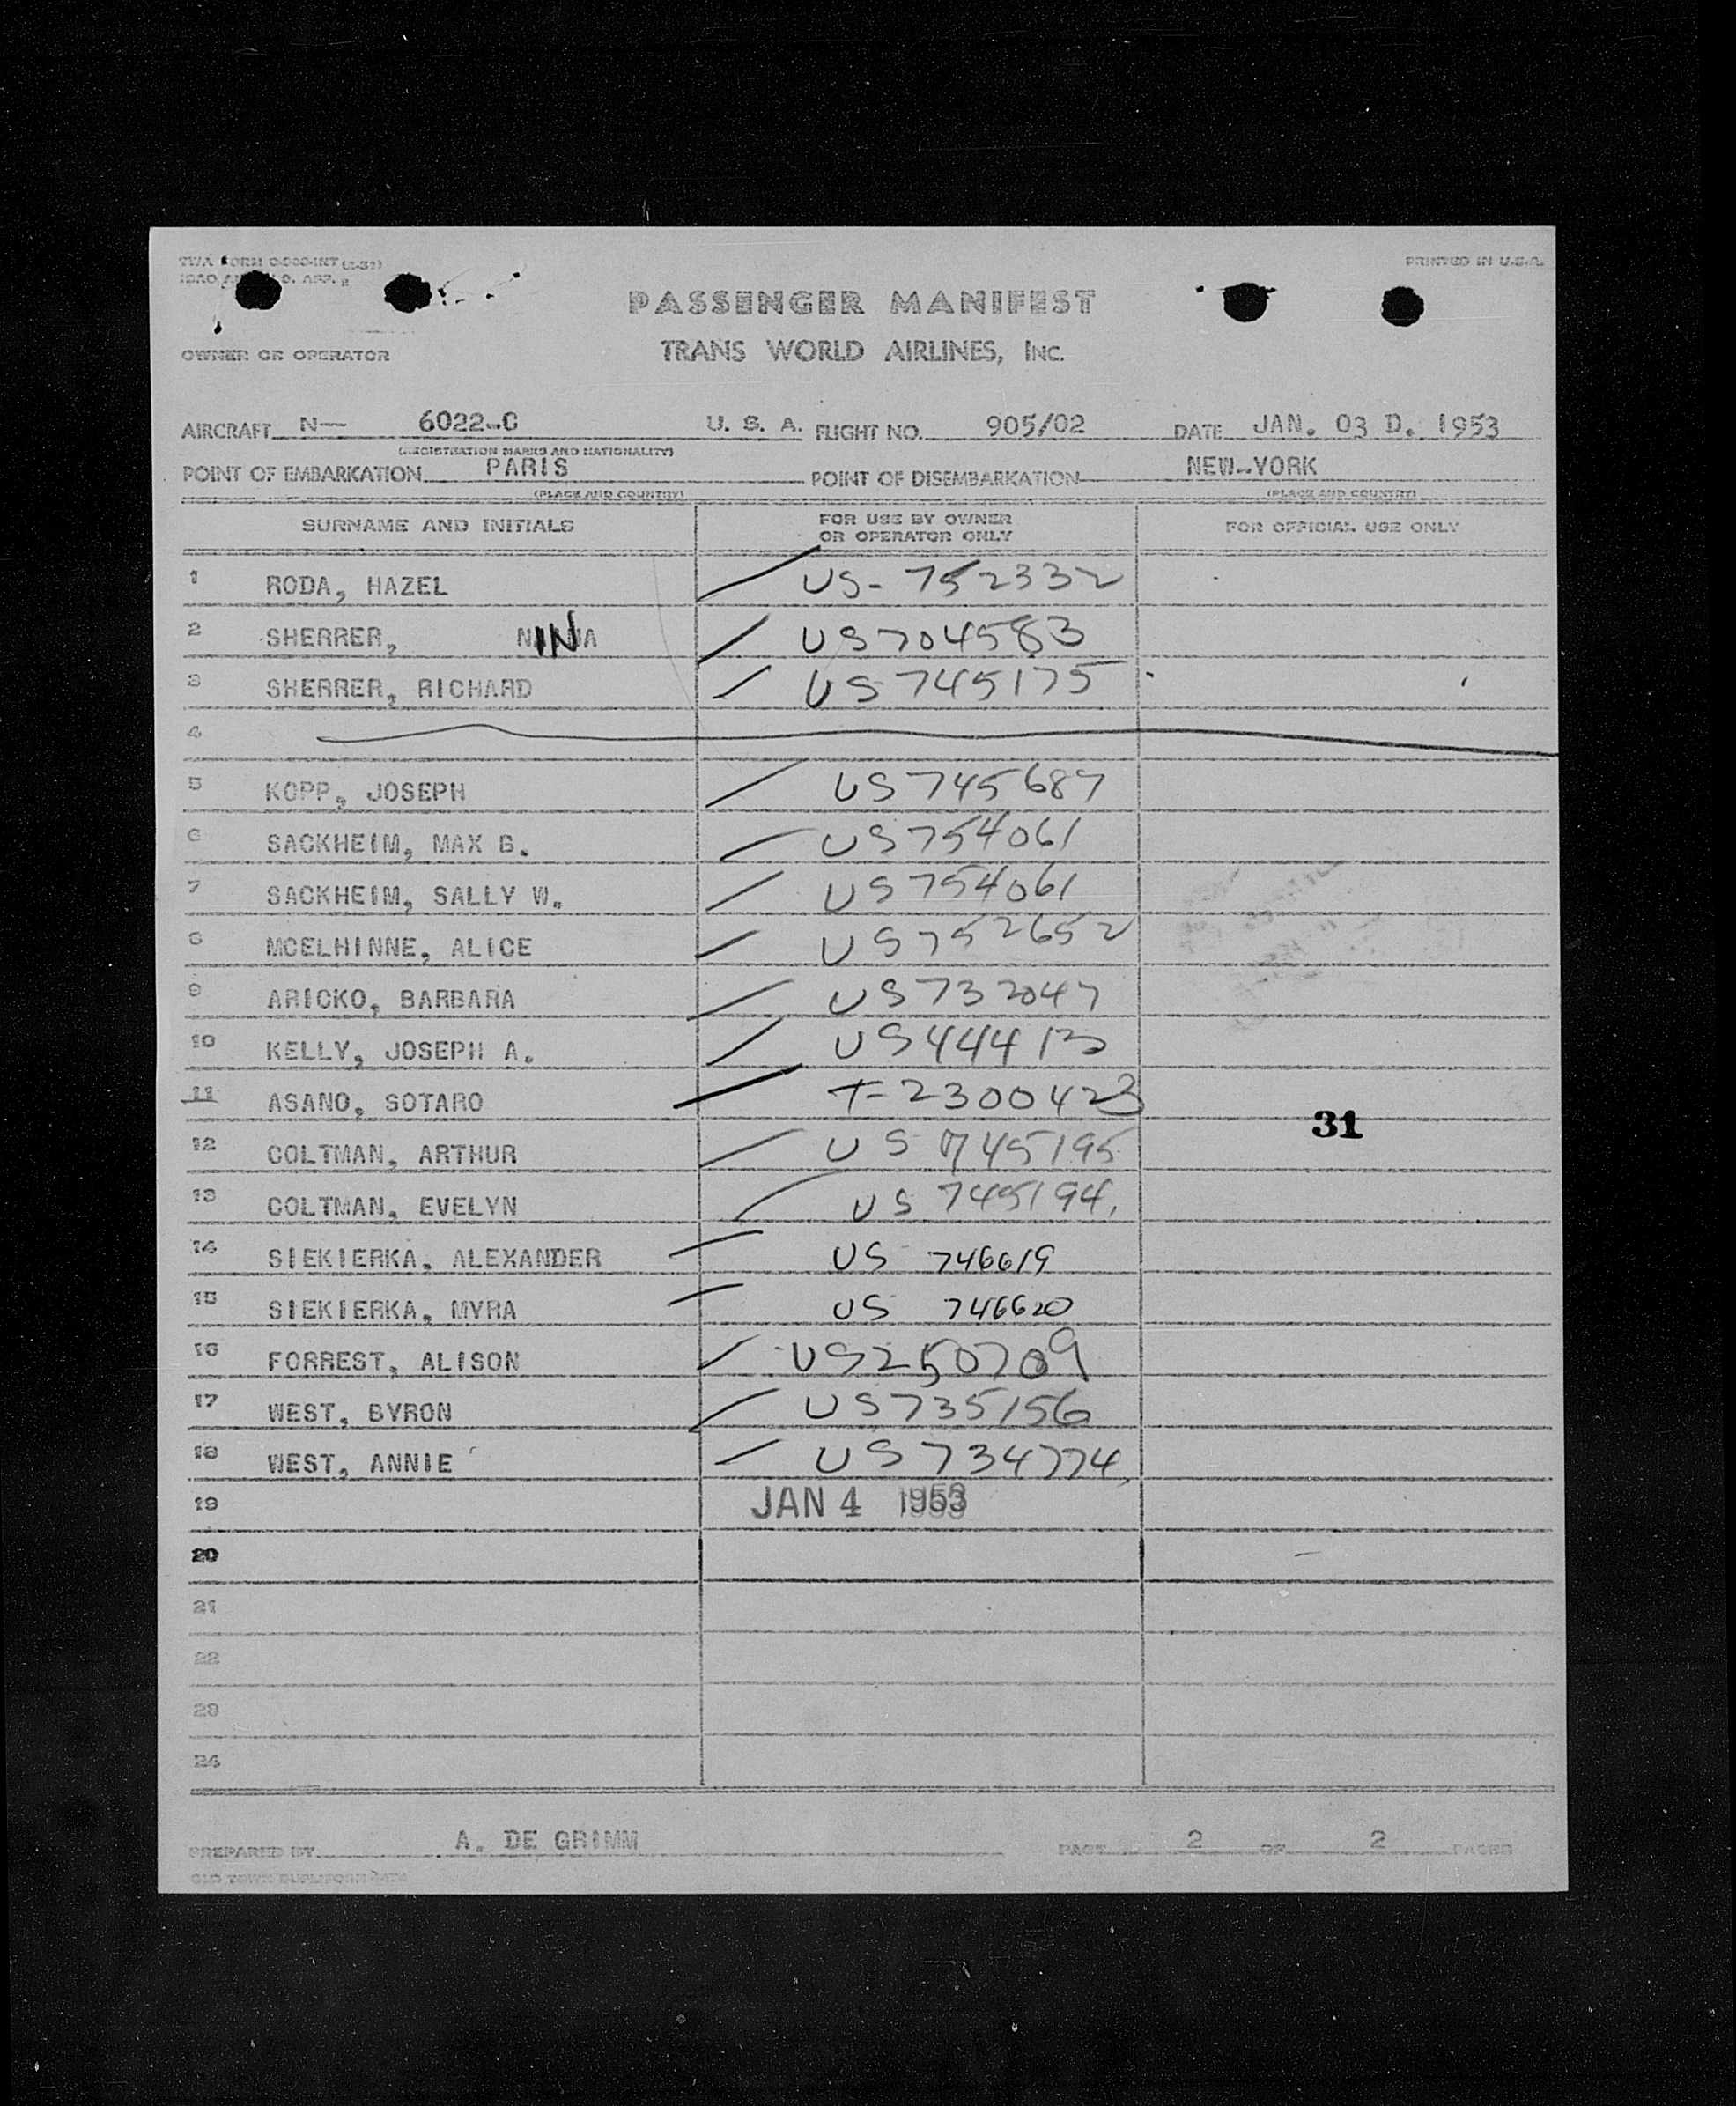 PRINTED IN U.S.A.
PASSENGER MANIFEST
OWNER OR OPERATOR TRANS WORLD AIRLINES, INC.
AIRCRAFT N— 6022-C U. S. A. FLIGHT NO. 905/02 DATE JAN. 03 D. 1953
(REGISTRATION MARKS AND NATIONALITY)
POINT OF EMBARKATION PARIS POINT OF DISEMBARKATION NEW-YORK
(PLACE AND COUNTRY) (PLACE AND COUNTRY)
SURNAME AND INITIALS FOR USE BY OWNER OR OPERATOR ONLY FOR OFFICIAL USE ONLY
1 RODA, HAZEL US- 752332
2 SHERRER, NINA US704583
3 SHERRER, RICHARD US745175
4
5 KOPP, JOSEPH US745687
6 SACKHEIM, MAX B. US754061
7 SACKHEIM, SALLY W. US754061
8 MCELHINNE, ALICE US752652
9 ARICKO, BARBARA US732047
10 KELLY, JOSEPH A. US44413
11 ASANO, SOTARO T-2300423
31
12 COLTMAN, ARTHUR US 745195
13 COLTMAN, EVELYN US 745194.
14 SIEKIERKA, ALEXANDER US 746619
15 SIEKIERKA, MYRA US 746620
16 FORREST, ALISON US250709
17 WEST, BYRON US735156
18 WEST, ANNIE US734774
19 JAN 4 1953
20
21
22
23
24
PREPARED BY A. DE GRIMM PAGE 2 OF 2 PAGES